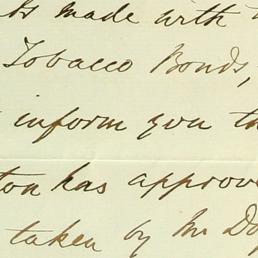 made with
Tobacco Bonds,
inform you
has approve
taken by Mr Do